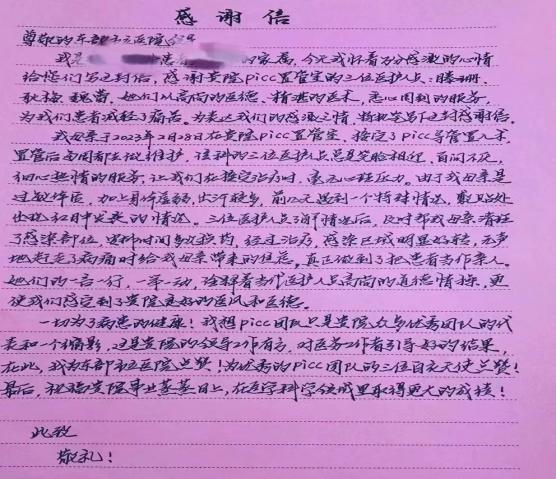 感谢信
尊敬的东部市立医院
我是 患者 的家属,今天我怀着万分感激的心情
给您们写这封信,感谢贵院picc置管室的三位医护人员:滕珊
她们以高尚的医德、精湛的医术、悉心周到的服务,
为我们患者减轻了病苦。为表达我们的感激之情,特提笔写下这封感谢信。
我母亲于2023年2月28日在贵院picc置管室,接受了picc导管置入术,
置管后每周都去做维护,该科的三位医护人员总是笑脸相迎,百问不厌,
细心热情的服务,让我们在接受治疗时,毫无心理压力。由于我母亲是
过敏体质,加上身体虚弱,出汗较多,前几天遇到一个特殊情况,敷贴处
出现红肿发炎的情况。三位医护人员了解情况后,及时帮我母亲清理
了感染部位,定时间多次换药,经过治疗,感染区域明显好转,无声
地赶走了病痛时给我母亲带来的住院。真正做到了把患者当作亲人。
她们的一言一行,一举一动,诠释着当代医护人员高尚的道德情操,更
使我们感受到了贵院良好的医风和医德。
一切为了病患的健康!我想picc团队只是贵院众多优秀团队的代
表和一个缩影,这是贵院的领导工作有方,对医务工作者引导好的结果,
在此,我为东部市立医院点赞!为优秀的picc团队的三位白衣天使点赞!
最后,祝福贵院事业蒸蒸日上,在医学科学领域里取得更大的成绩!
此致
敬礼!